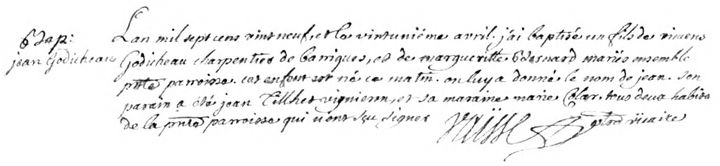 6 Bap:
jean Godicheau
L'an mil sept cens vint neuf, et le vintunième avril, j'ai baptisé un fils de
Godicheau charpentier de barriques, et de margueritte mariés ensemble
pnte parroisse, cet enfant est né ce matin, on luy a donné le nom de jean, son
parain a été jean vigneron, et sa maraine marie tous deux habita
de la pnte parroisse qui n'ont sçu signer vicaire